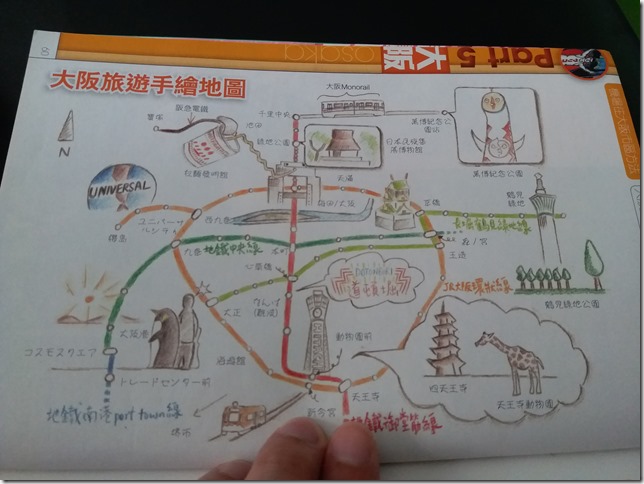 8
Part 5
大阪
osaka
大阪旅遊手繪地圖
大阪Monorail
阪急電鐵
寶塚
池田
千里中央
萬博紀念公
園站
N
綠地公園
日本民俗集
落博物館
萬博紀念公園
UNIVERSAL
天滿
梅田/大阪
京橋
鶴見
綠地
ユニバーサ
ルシティ
西九条
櫻島
九条
地鐵中央線
本町
森ノ宮
玉造
心斎橋
DOTONBORI
道頓堀
JR大阪環狀線
鶴見綠地公園
大正
なんば
(難波)
大阪港
動物園前
コスモスクエア
トレードセンター前
四天王寺
天王寺動物園
天王寺
新今宮
地鐵南港port town線
堺市
地鐵御堂筋線